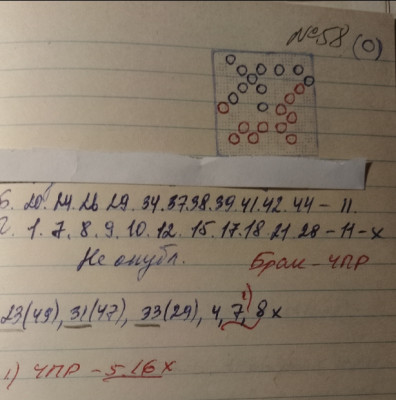 №58. (0)
Б. 20. 24. 26 29. 34. 37. 38. 39. 41. 42. 44 – 11.
1. 7. 8. 9. 10. 12. 15. 17. 18. 21 28 – 11 – x
Не опубл. Брак – ЧПР
23(49), 31(47), 33(29), 4, 7, 8 x
1) ЧПР – 5. 16 x